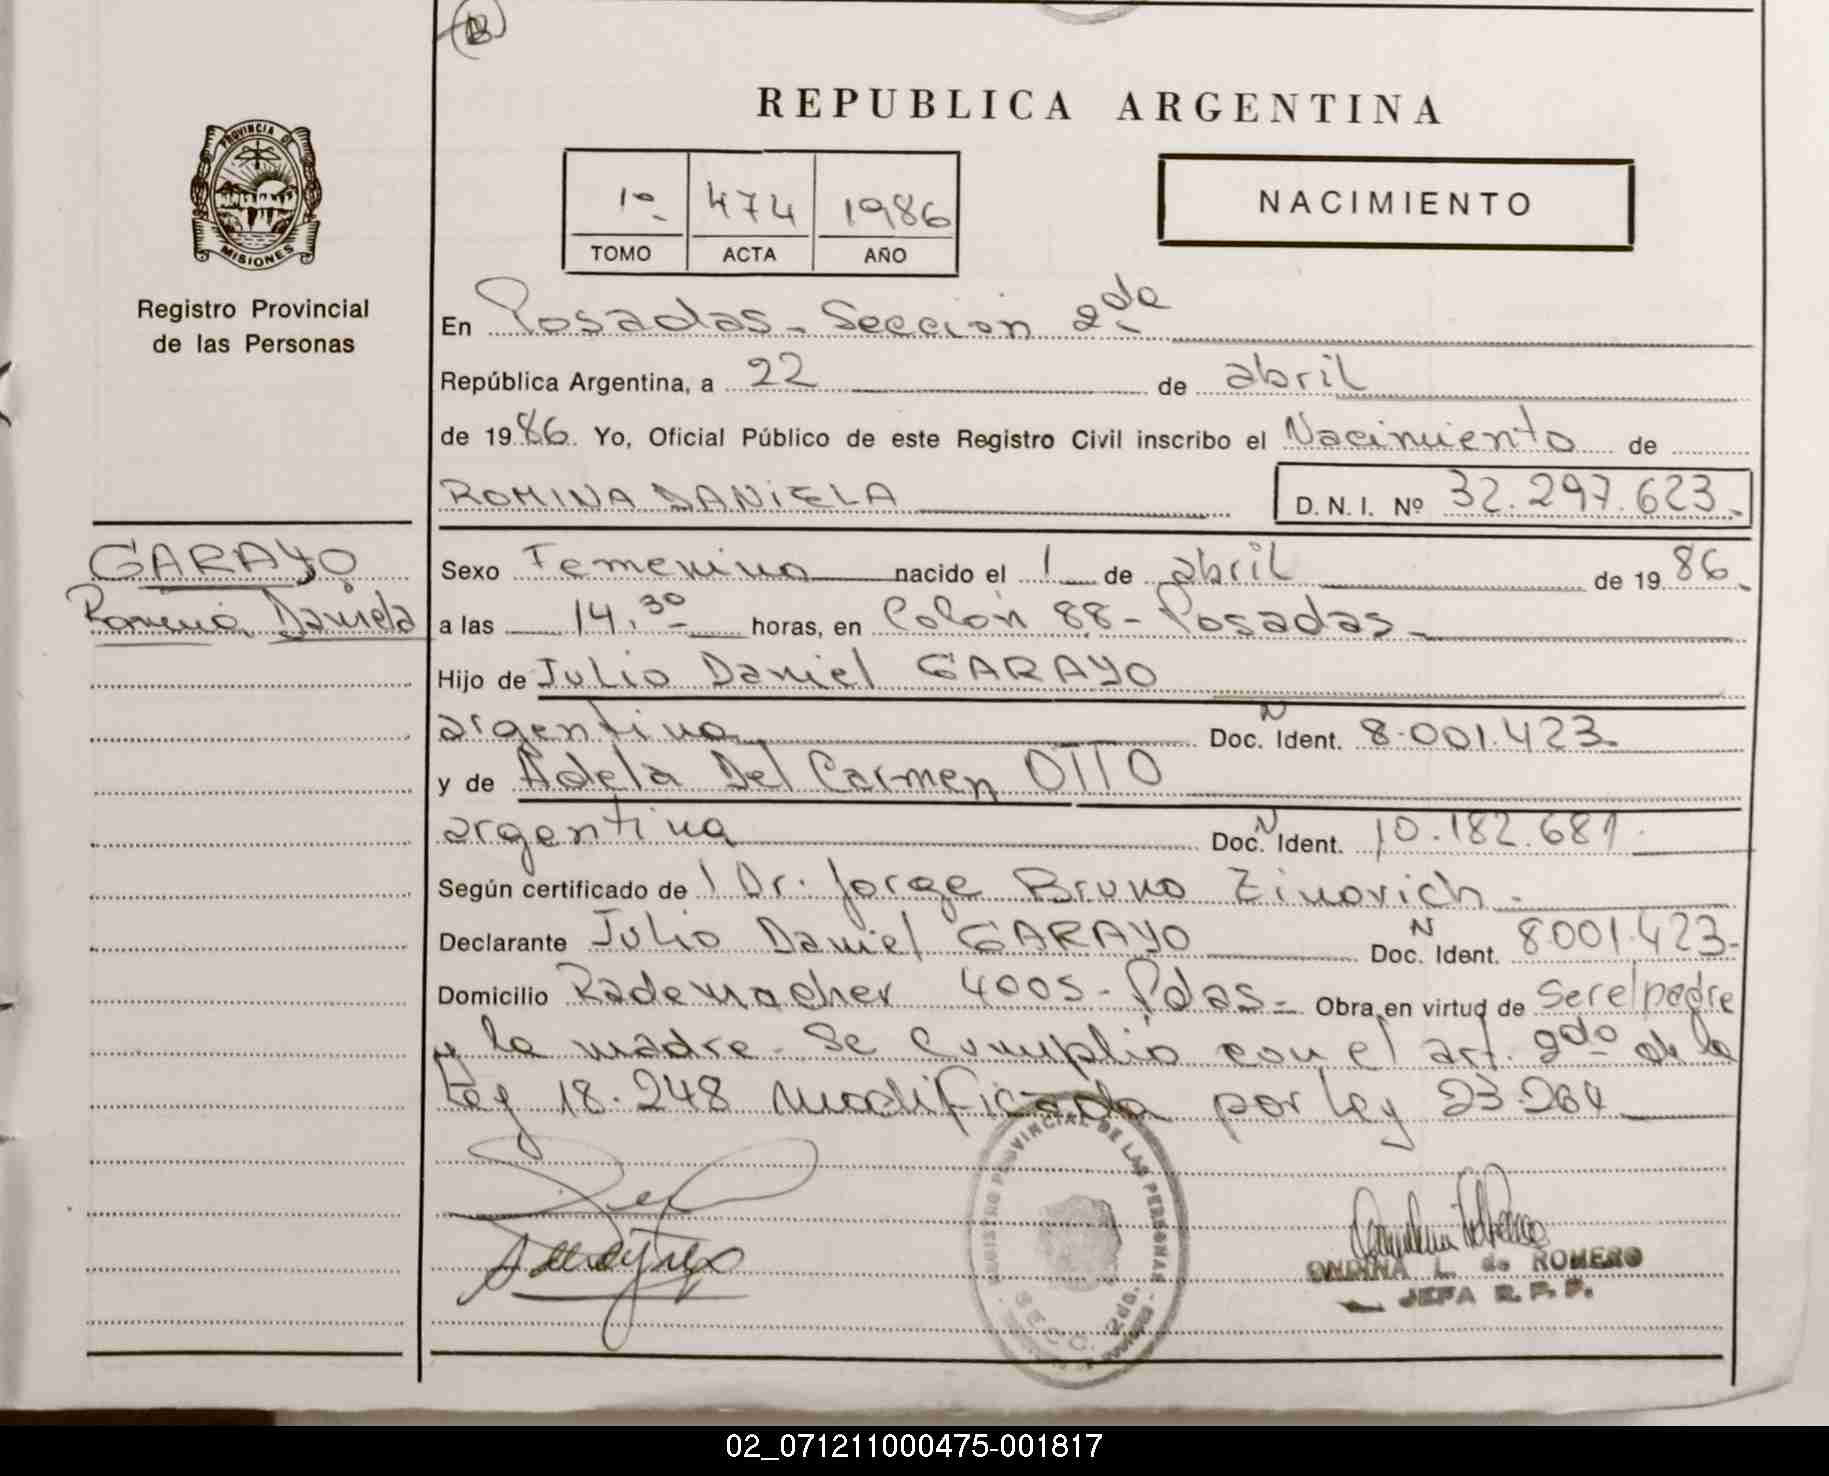 B
REPUBLICA ARGENTINA
PROVINCIA DE
MISIONES
Registro Provincial
de las Personas
1º 474 1986
TOMO ACTA AÑO
NACIMIENTO
En Posadas - Sección 2da
República Argentina, a 22 de abril
de 1986. Yo, Oficial Público de este Registro Civil inscribo el Nacimiento de
ROMINA DANIELA D. N. I. Nº 32.297.623.-
GARAYO
Romina Daniela
Sexo Femenino nacido el 1 de abril de 1986.
a las 14.30 horas, en Colón 88 - Posadas -
Hijo de Julio Daniel GARAYO
argentino Doc. N Ident. 8.001.423
y de Adela Del Carmen OTTO
argentina Doc. N Ident. 10.182.681
Según certificado de l Dr. Jorge Bruno Zinovich -
Declarante Julio Daniel GARAYO Doc. N Ident. 8.001.423-
Domicilio Rademacher 4005 - Pdas - Obra en virtud de ser el padre
y la madre - Se cumplió con el art. 2do de la
Ley 18.248 modificada por ley 23.264
REGISTRO PROVINCIAL DE LAS PERSONAS
SECC. 2da.
ONDINA L. de ROMERO
JEFA R. P. P.
02_071211000475-001817